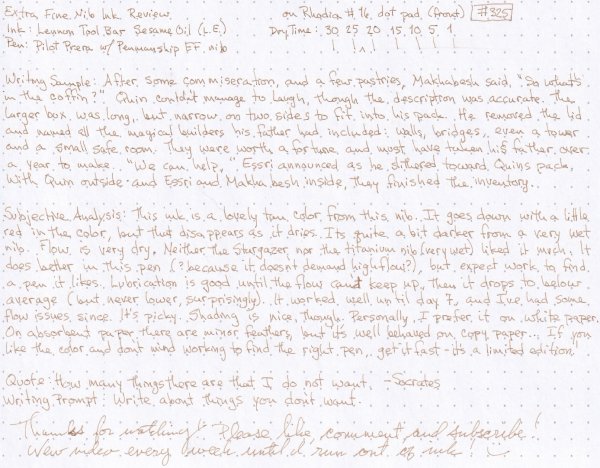 Extra Fine Nib Ink Review on Rhodia #16, dot pad, (front) #325
Ink: Lennon Tool Bar Sesame Oil (L.E.) Dry Time: 30 25 20 15 10 5 1
Pen: Pilot Prera w/ Penmanship EF nib
Writing Sample: After some commiseration, and a few pastries, Makhabesh said, "So what's
in the coffin?" Quin couldn't manage to laugh, though the description was accurate. The
larger box was long, but narrow on two sides to fit into his pack. He removed the lid
and named all the magical builders his father had included: walls, bridges, even a tower
and a small safe room. They were worth a fortune, and must have taken his father over
a year to make. "We can help," Essri announced as he slithered toward Quin's pack.
With Quin outside and Essri and Makhabesh inside, they finished the inventory.
Subjective Analysis: This ink is a lovely tan color from this nib. It goes down with a little
red in the color, but that disappears as it dries. It's quite a bit darker from a very wet
nib. Flow is very dry. Neither the Stargazer, nor the titanium nib (very wet) liked it much. It
does better in this pen (? because it doesn't demand high flow?), but expect work to find
a pen it likes. Lubrication is good until the flow can't keep up, then it drops to below
average (but never lower, surprisingly). It worked well until day 7, and I've had some
flow issues since. It's picky. Shading is nice, though. Personally, I prefer it on white paper.
On absorbent paper there are minor feathers, but it's well behaved on copy paper. If you
like the color and don't mind working to find the right pen, get it fast - it's a limited edition!
Quote: How many things there are that I do not want. -Socrates
Writing Prompt: Write about things you don't want.
Thanks for watching! Please like, comment, and subscribe!
New video every week until I run out of ink!